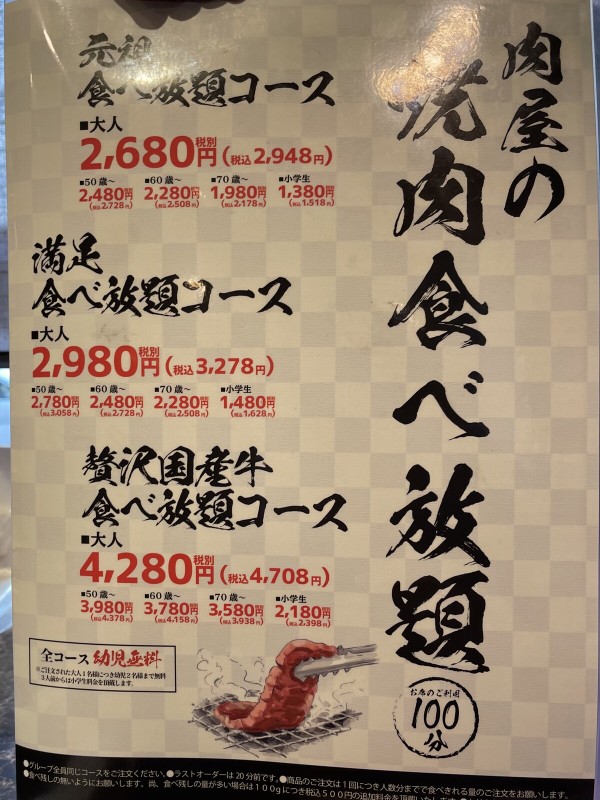 肉屋の
焼肉食べ放題
お席のご利用
100分
元祖
食べ放題コース
■大人
2,680円税別(税込2,948円)
■50歳〜 ■60歳〜 ■70歳〜 ■小学生
2,480円 2,280円 1,980円 1,380円
(税込2,728円) (税込2,508円) (税込2,178円) (税込1,518円)
満足
食べ放題コース
■大人
2,980円税別(税込3,278円)
■50歳〜 ■60歳〜 ■70歳〜 ■小学生
2,780円 2,480円 2,280円 1,480円
(税込3,058円) (税込2,728円) (税込2,508円) (税込1,628円)
贅沢国産牛
食べ放題コース
■大人
4,280円税別(税込4,708円)
■50歳〜 ■60歳〜 ■70歳〜 ■小学生
3,980円 3,780円 3,580円 2,180円
(税込4,378円) (税込4,158円) (税込3,938円) (税込2,398円)
全コース 幼児無料
※ご注文された大人1名様につき幼児2名様まで無料
3人前からは小学生料金を頂戴します。
●グループ全員同じコースをご注文ください。●ラストオーダーは20分前です。●商品のご注文は1回につき人数分までで食べきれる量のご注文をお願いします。
●食べ残しの無いようにお願いします。尚、食べ残しの量が多い場合は100gにつき税込500円の追加料金を頂戴いたします